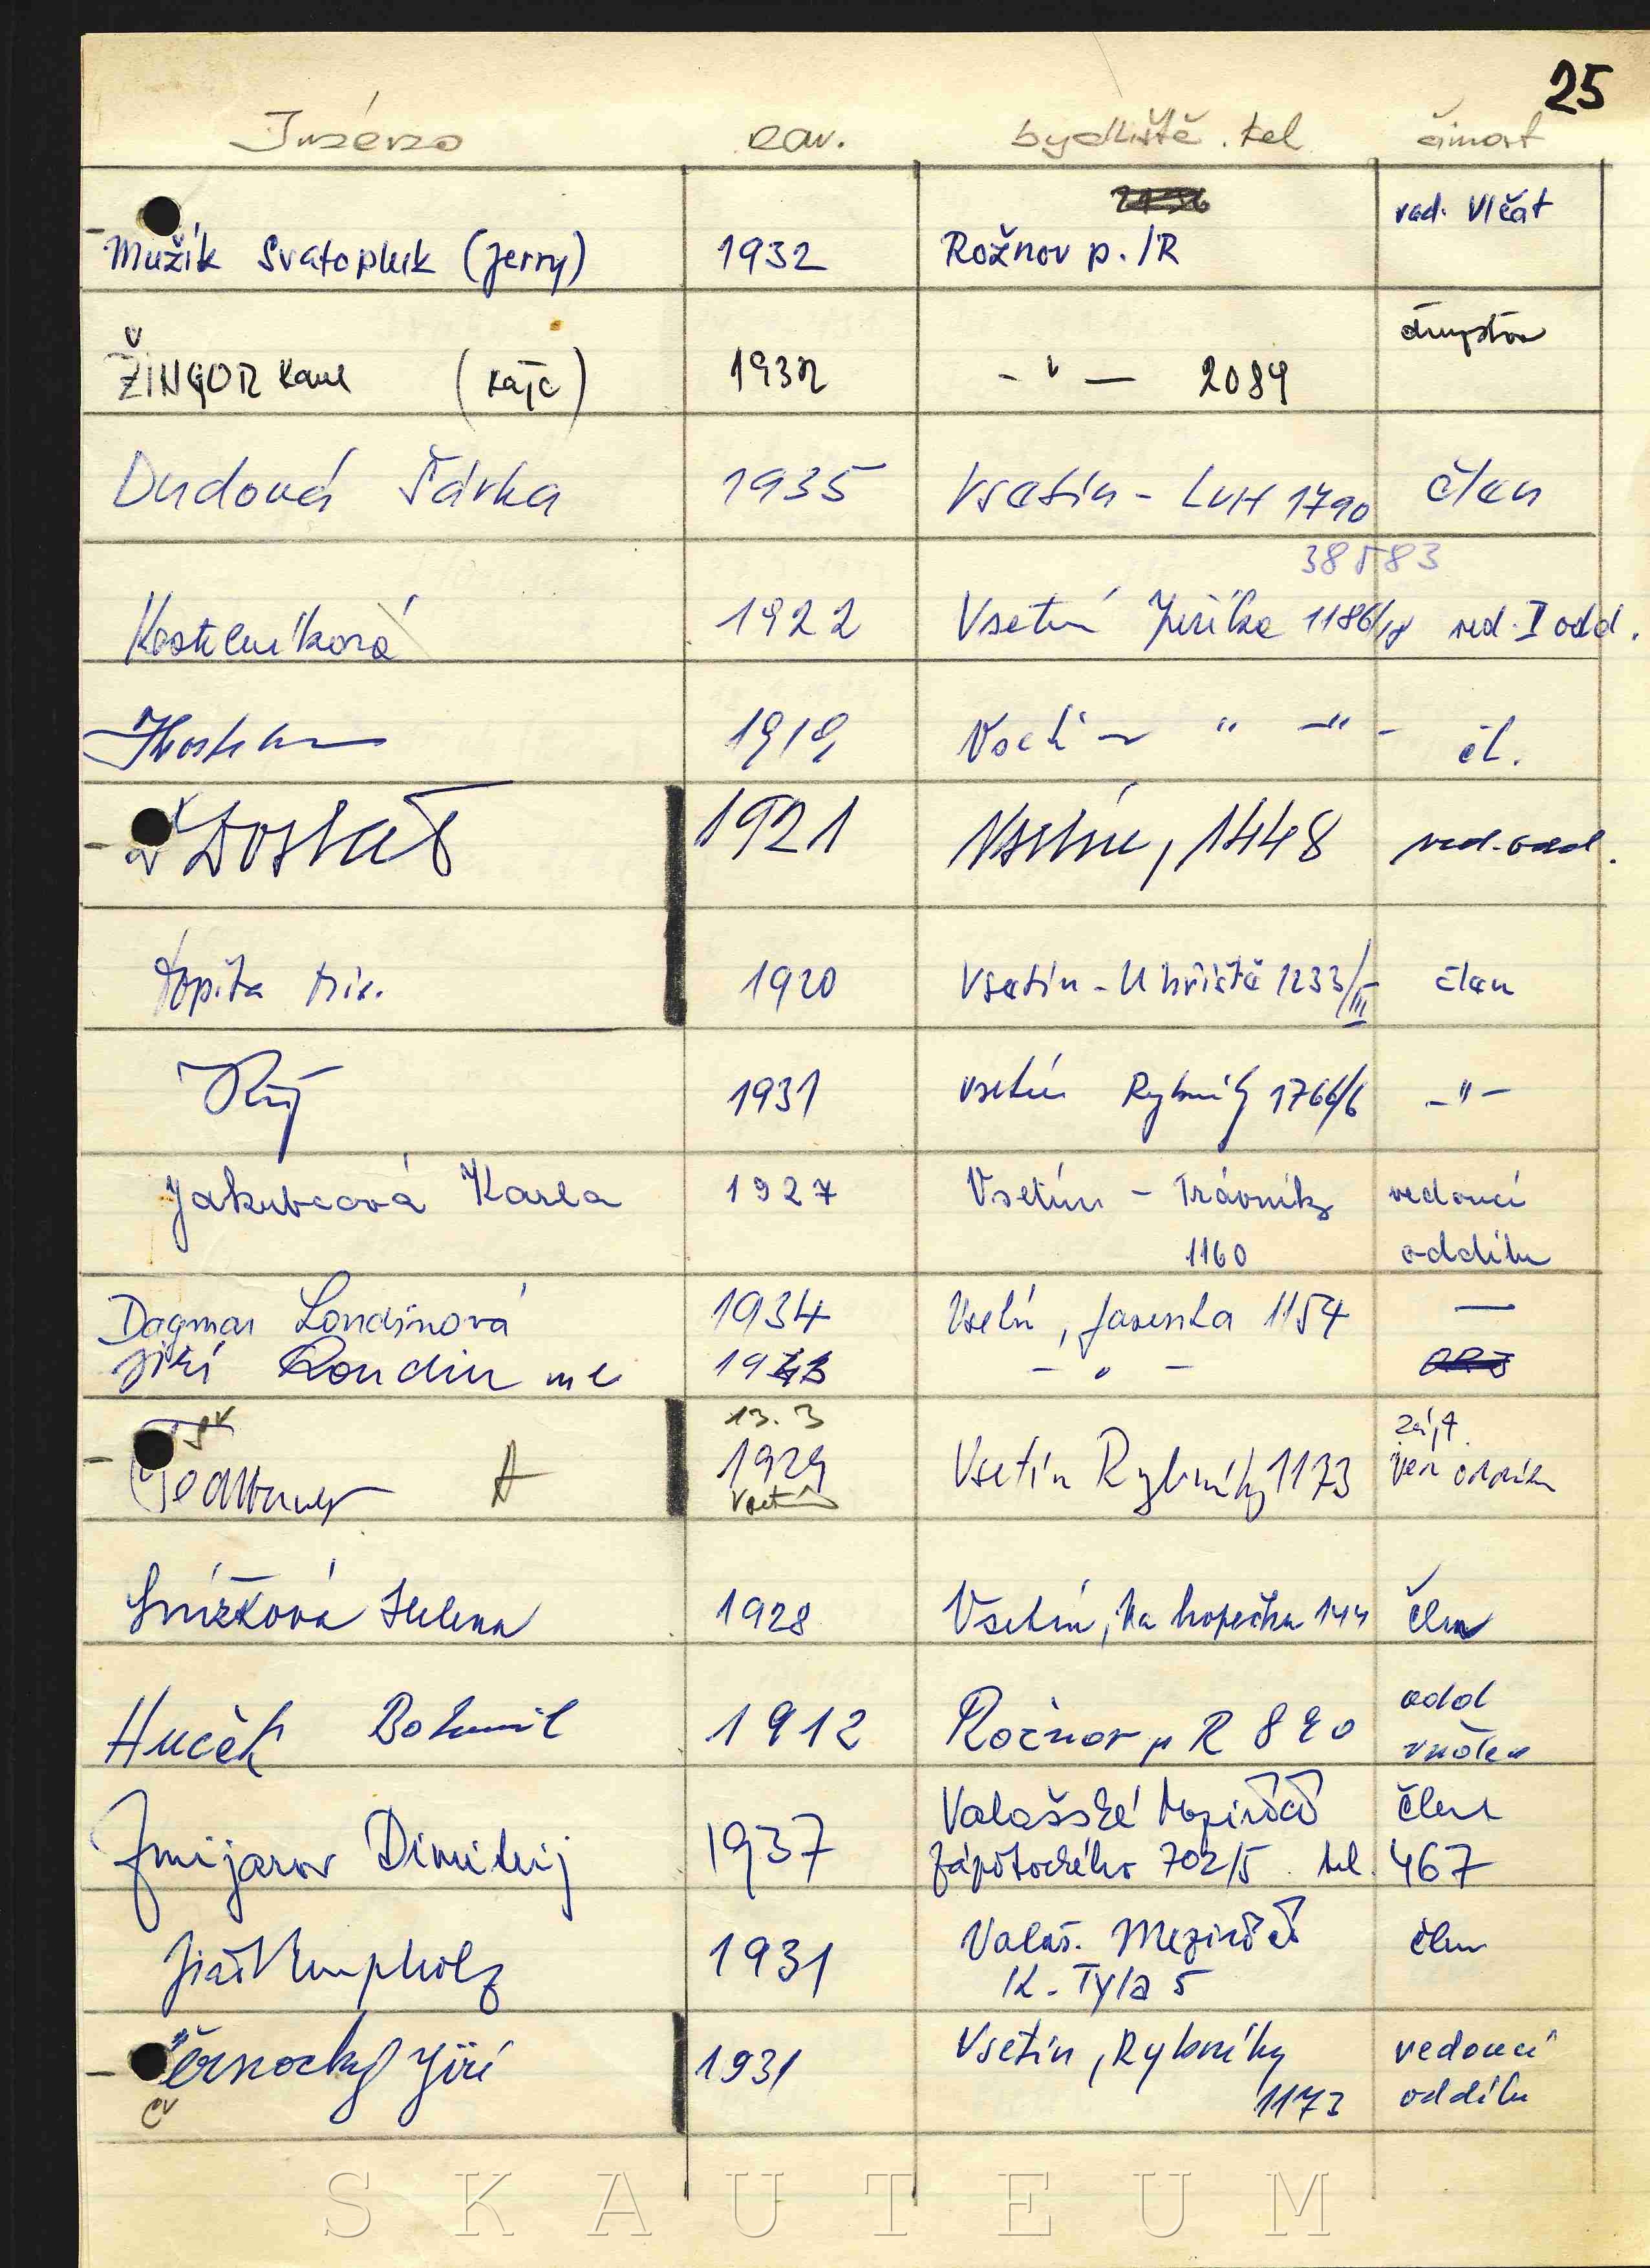 25
Jméno nar. bydliště. tel činost
ved. Vlčat
Mužík Svatopluk (Jerry) 1932 Rožnov p./R
ŽINGOR (Kája) 1932 - " - 2084
Dudová Šárka 1935 Vsetín - LUH 1790 člen
38583
Kostelníková 1922 Vsetín Jiříka 1186/18 ved. I odd.
1919 Vsetín " -"- čl.
Dostál 1921 Vsetín, 1448 ved. odd.
1920 Vsetín - U hřiště 1233/III člen
1931 Vsetín Rybníky 1766/6 -"-
Jakubcová Karla 1927 Vsetín - Trávníky vedoucí
1160 oddílu
Dagmar Londinová 1934 Vsetín, Jasenka 1154 —
Jiří Londin ml - " -
13.3 zást.
A 1929 Vsetín Rybníky 1173 ved oddílu
Vsetín
Helena 1928 Vsetín, Na kopečku 144 člen
odd
Huček Bohumil 1912 Rožnov p R 820
Valašské Meziříčí člen
Zmijarov Dimitrij 1937 Zápotockého 702/5 tel. 467
Jiří 1931 Valaš. Meziříčí člen
K. Tyla 5
Černocký Jiří 1931 Vsetín, Rybníky vedoucí
Č 1173 oddílu
SKAUTEUM